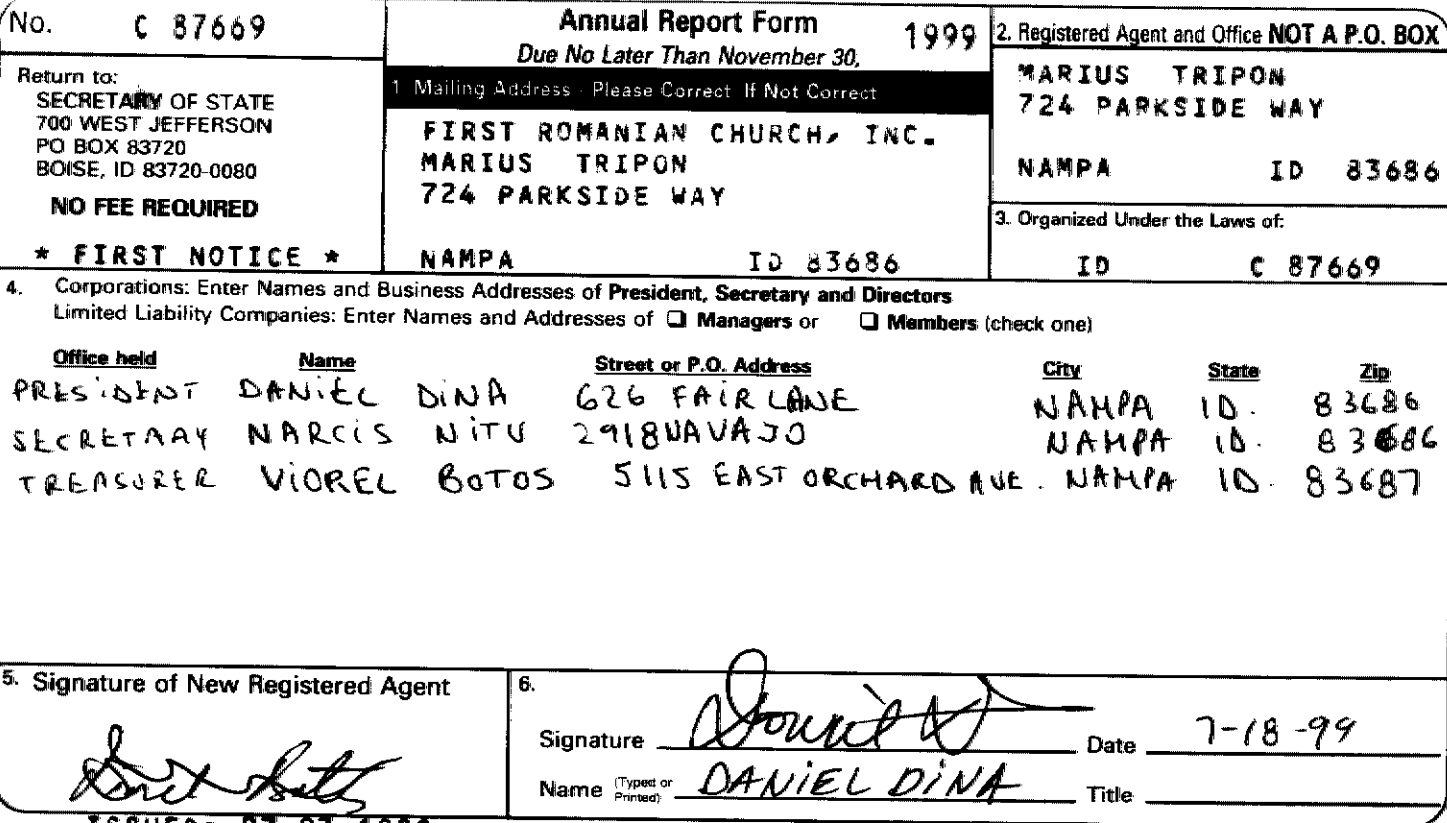 No. C 87669
Return to:
SECRETARY OF STATE
700 WEST JEFFERSON
PO BOX 83720
BOISE, ID 83720-0080
NO FEE REQUIRED
* FIRST NOTICE *
Annual Report Form 1999
Due No Later Than November 30,
1 Mailing Address - Please Correct If Not Correct
FIRST ROMANIAN CHURCH, INC.
MARIUS TRIPON
724 PARKSIDE WAY
NAMPA ID 83686
2. Registered Agent and Office NOT A P.O. BOX
MARIUS TRIPON
724 PARKSIDE WAY
NAMPA ID 83686
3. Organized Under the Laws of:
ID C 87669
4. Corporations: Enter Names and Business Addresses of President, Secretary and Directors
Limited Liability Companies: Enter Names and Addresses of ❑ Managers or ❑ Members (check one)
Office held Name Street or P.O. Address City State Zip
PRESIDENT DANIEL DINA 626 FAIR LANE NAMPA ID. 83686
SECRETAAY NARCIS NITU 2918 NAVAJO NAMPA ID. 83686
TREASURER VIOREL BOTOS 5115 EAST ORCHARD AVE. NAMPA ID. 83687
5. Signature of New Registered Agent
6.
Signature Date 7-18-99
Name (Typed or Printed) DANIEL DINA Title